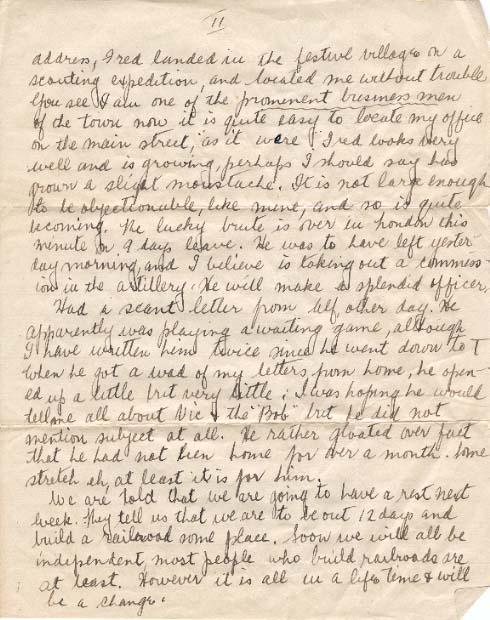 11
address, Fred landed in the festive village on a
scouting expedition, and located me without trouble
You see I am one of the prominent business men
of the town now it is quite easy to locate my office
on the main street, as it were! Fred looks very
well and is growing, perhaps I should say has
grown a slight moustache. It is not large enough
to be objectionable, like mine, and so is quite
becoming. The lucky brute is over in London this
minute on 9 days leave. He was to have left yester-
day morning, and I believe is taking out a commiss-
ion in the artillery. He will make a splendid officer.
Had a scant letter from Alf, other day. He
apparently was playing a waiting game, although
I have written him twice since he went down to T
when he got a wad of my letters from home, he open-
ed up a little but very little; I was hoping he would
tell me all about Vic & the "Bob" but he did not
mention subject at all. He rather gloated over fact
that he had not been home for over a month. Some
stretch eh, at least it is for him.
We are told that we are going to have a rest next
week. They tell us that we are to be out 12 days and
build a railroad some place. Soon we will all be
independent, most people who build railroads are
at least. However it is all in a life time & will
be a change.